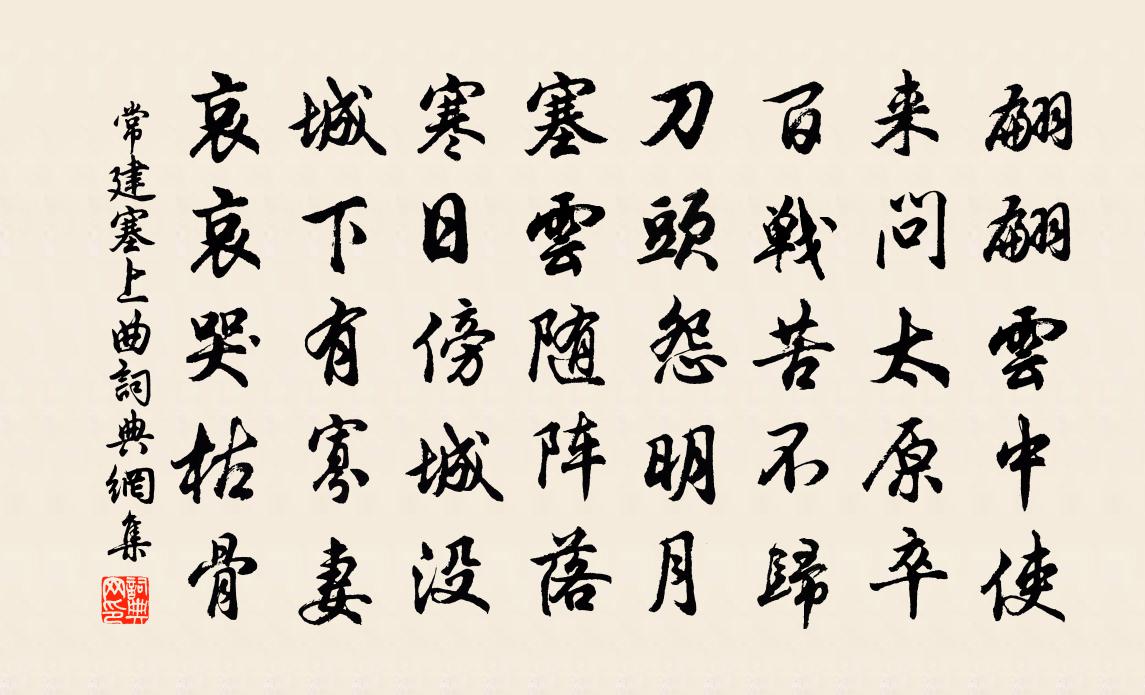 翩翩雲中使
来問太原卒
百戦苦不歸
刀頭怨明月
塞雲随阵落
寒日傍城没
城下有寡妻
哀哀哭枯骨
常建塞上曲詞典網集
詞典网印